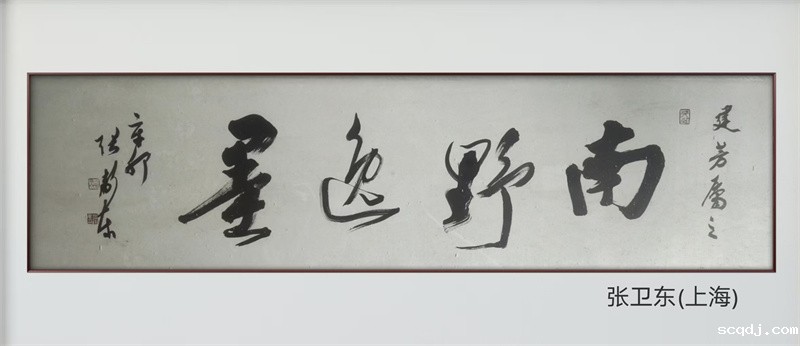 建芳属之
南野逸墨
辛卯
张卫东
张卫东(上海)
scqdj.com